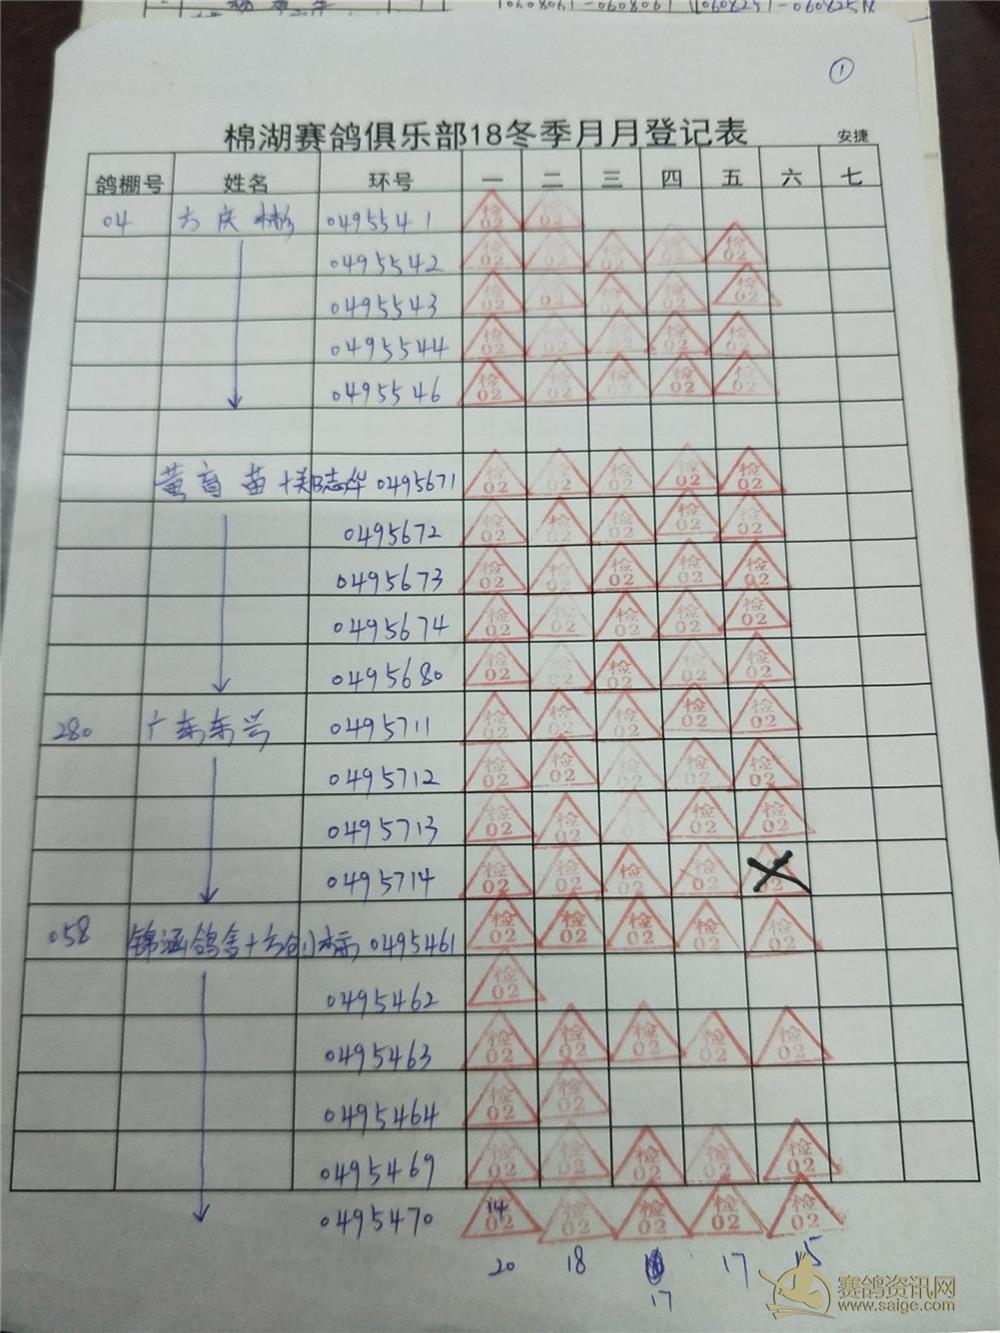 0608061-0608061 0608251-060825
①
棉湖赛鸽俱乐部18冬季月月登记表 安捷
鸽棚号 姓名 环号 一 二 三 四 五 六 七
04 方庆彬 0495541 检02 检02
0495542 检02 检02 检02 检02 检02
0495543 检02 检02 检02 检02 检02
0495544 检02 检02 检02 检02 检02
0495546 检02 检02 检02 检02 检02
黄育苗+郑志华 0495671 检02 检02 检02 检02 检02
0495672 检02 检02 检02 检02 检02
0495673 检02 检02 检02 检02 检02
0495674 检02 检02 检02 检02 检02
0495680 检02 检02 检02 检02 检02
280 广东东兴 0495711 检02 检02 检02 检02 检02
0495712 检02 检02 检02 检02 检02
0495713 检02 检02 检02 检02 检02
0495714 检02 检02 检02 检02
058 锦涵鸽舍+方创标 0495461 检02 检02 检02 检02 检02
0495462 检02
0495463 检02 检02 检02 检02 检02
0495464 检02 检02
0495469 检02 检02 检02 检02 检02
0495470 14 02 检02 检02 检02 检02
20 18 17 15
17
赛鸽资讯网
www.saige.com